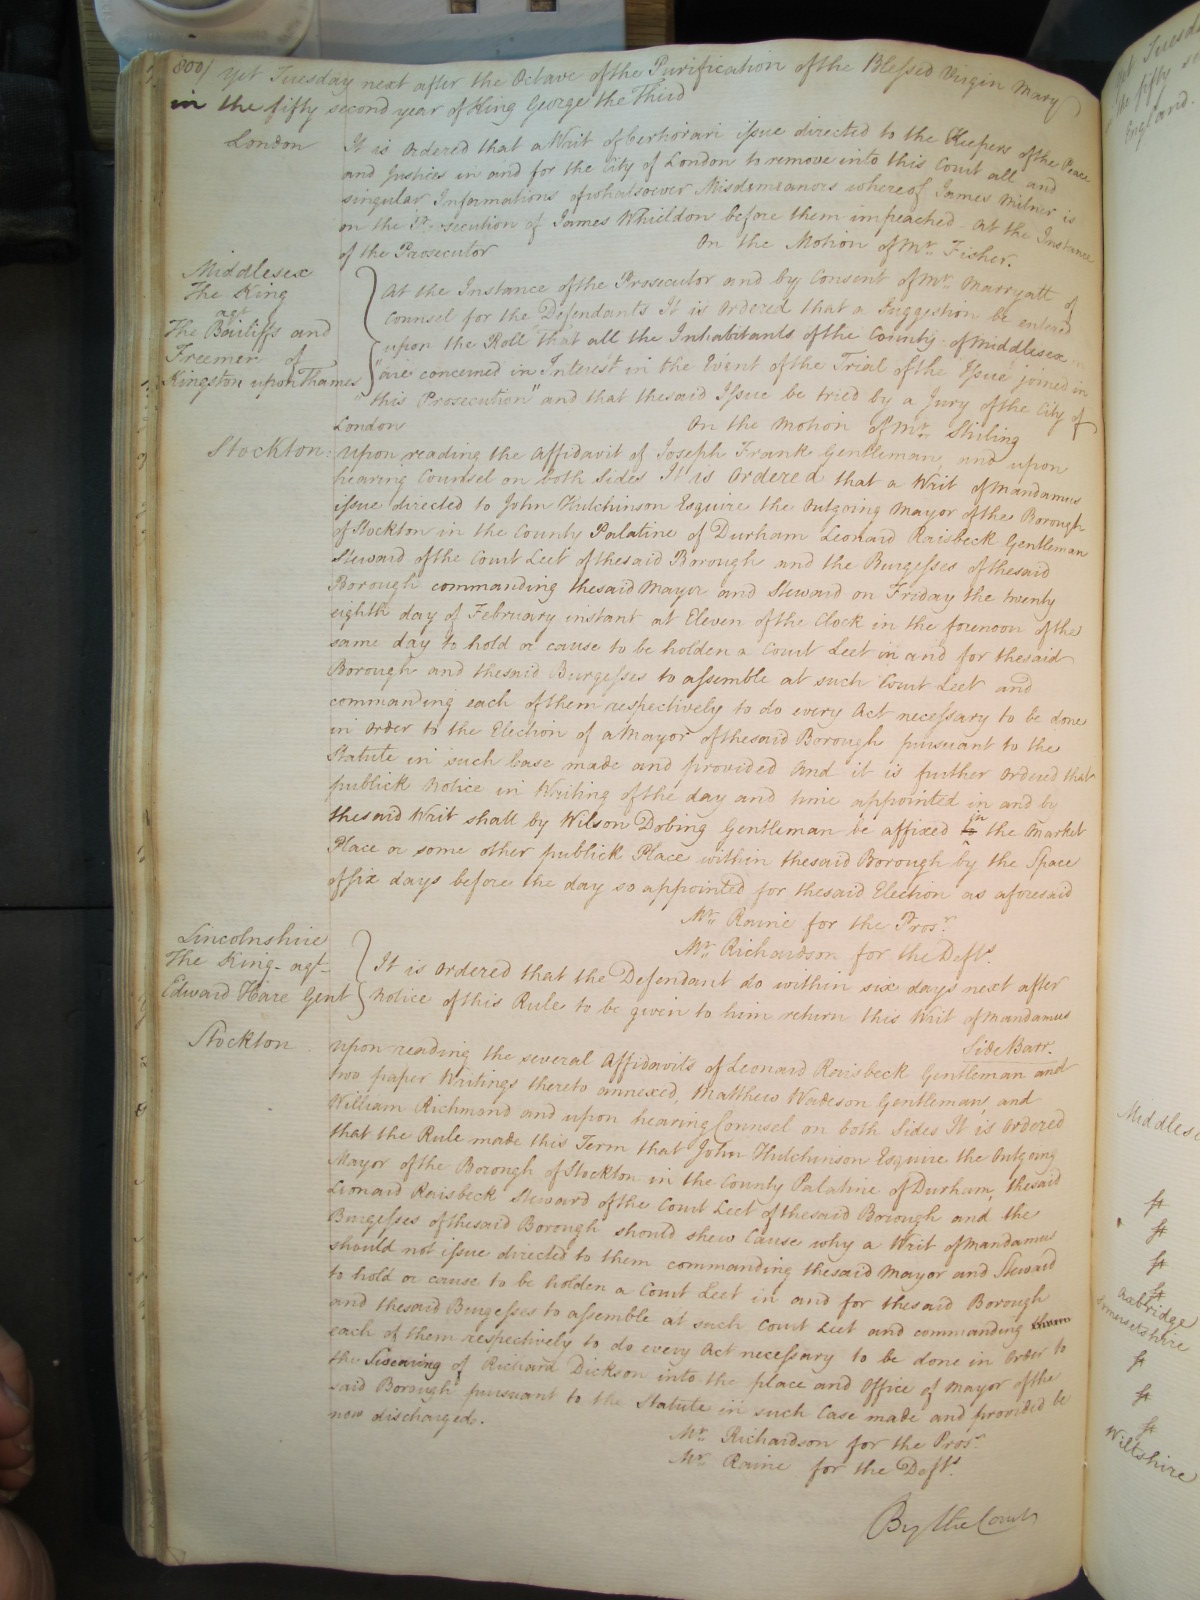 800/ Yet Tuesday next after the Octave of the Purification of the Blessed Virgin Mary
in the fifty second year of King George the Third
London
It is ordered that a Writ of Certiorari issue directed to the Keepers of the Peace
and Justices in and for the City of London to remove into this Court all and
singular Informations of whatsoever Misdemeanors whereof James Milner is
on the Prosecution of James Whieldon before them impeached at the Instance
of the Prosecutor
On the Motion of Mr. Fisher.
Middlesex
The King
agt
The Bailiffs and
Freemen of
Kingston upon Thames
At the Instance of the Prosecutor and by Consent of Mr. Marryatt of
Counsel for the Defendants It is ordered that a Suggestion be entered
upon the Roll "that all the Inhabitants of the County of Middlesex
"are concerned in Interest in the Event of the Trial of the Issue joined in
"this Prosecution" and that the said Issue be tried by a Jury of the City of
London
On the Motion of Mr. Stirling
Stockton:
Upon reading the affidavit of Joseph Frank Gentleman, and upon
hearing Counsel on both sides It is ordered that a Writ of Mandamus
issue directed to John Hutchinson Esquire the outgoing Mayor of the Borough
of Stockton in the County Palatine of Durham Leonard Raisbeck Gentleman
Steward of the Court Leet of the said Borough and the Burgesses of the said
Borough commanding the said Mayor and Steward on Friday the twenty
eighth day of February instant at Eleven of the Clock in the forenoon of the
same day to hold or cause to be holden a Court Leet in and for the said
Borough and the said Burgesses to assemble at such Court Leet and
commanding each of them respectively to do every Act necessary to be done
in order to the Election of a Mayor of the said Borough pursuant to the
Statute in such Case made and provided And it is further ordered that
publick Notice in Writing of the day and time appointed in and by
the said Writ shall by Wilson Dobing Gentleman be affixed in the Market
Place or some other publick Place within the said Borough by the Space
of six days before the day so appointed for the said Election as aforesaid
Mr. Raine for the Prosr.
Mr. Richardson for the Defts.
Lincolnshire
The King agt
Edward Hare Gent
It is ordered that the Defendant do within six days next after
Notice of this Rule to be given to him return this Writ of Mandamus
Side Barr.
Stockton
Upon reading the several Affidavits of Leonard Raisbeck Gentleman and
two paper Writings thereto annexed, Matthew Wadeson Gentleman, and
William Richmond and upon hearing Counsel on both Sides It is ordered
that the Rule made this Term that John Hutchinson Esquire the outgoing
Mayor of the Borough of Stockton in the County Palatine of Durham, the said
Leonard Raisbeck Steward of the Court Leet of the said Borough and the
Burgesses of the said Borough should shew Cause why a Writ of Mandamus
should not issue directed to them commanding the said Mayor and Steward
to hold or cause to be holden a Court Leet in and for the said Borough
and the said Burgesses to assemble at such Court Leet and commanding them
each of them respectively to do every Act necessary to be done in order to
the Swearing of Richard Dickson into the place and Office of Mayor of the
said Borough pursuant to the Statute in such Case made and provided be
now discharged.
Mr. Richardson for the Prosr.
Mr. Raine for the Defts.
By the Court
England.
Uxbridge
Somersetshire
Wiltshire